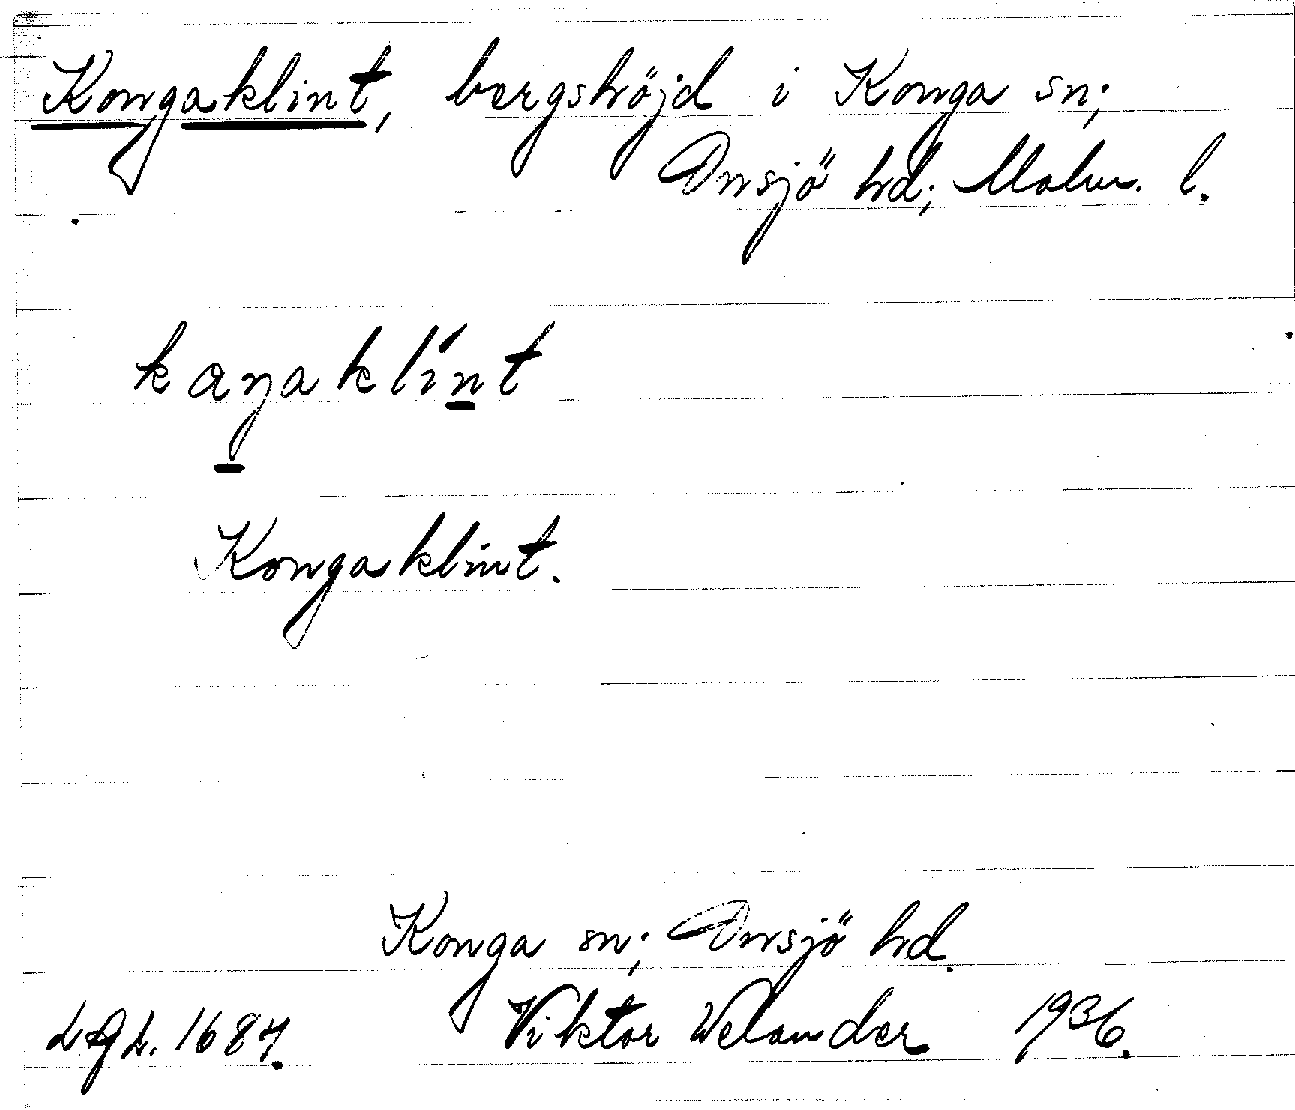 Kongaklint, bergshöjd i Konga sn;
Onsjö hd; Malm. l.
kaŋaklínt
Kongaklint.
Konga sn; Onsjö hd.
Viktor Welander 1936.